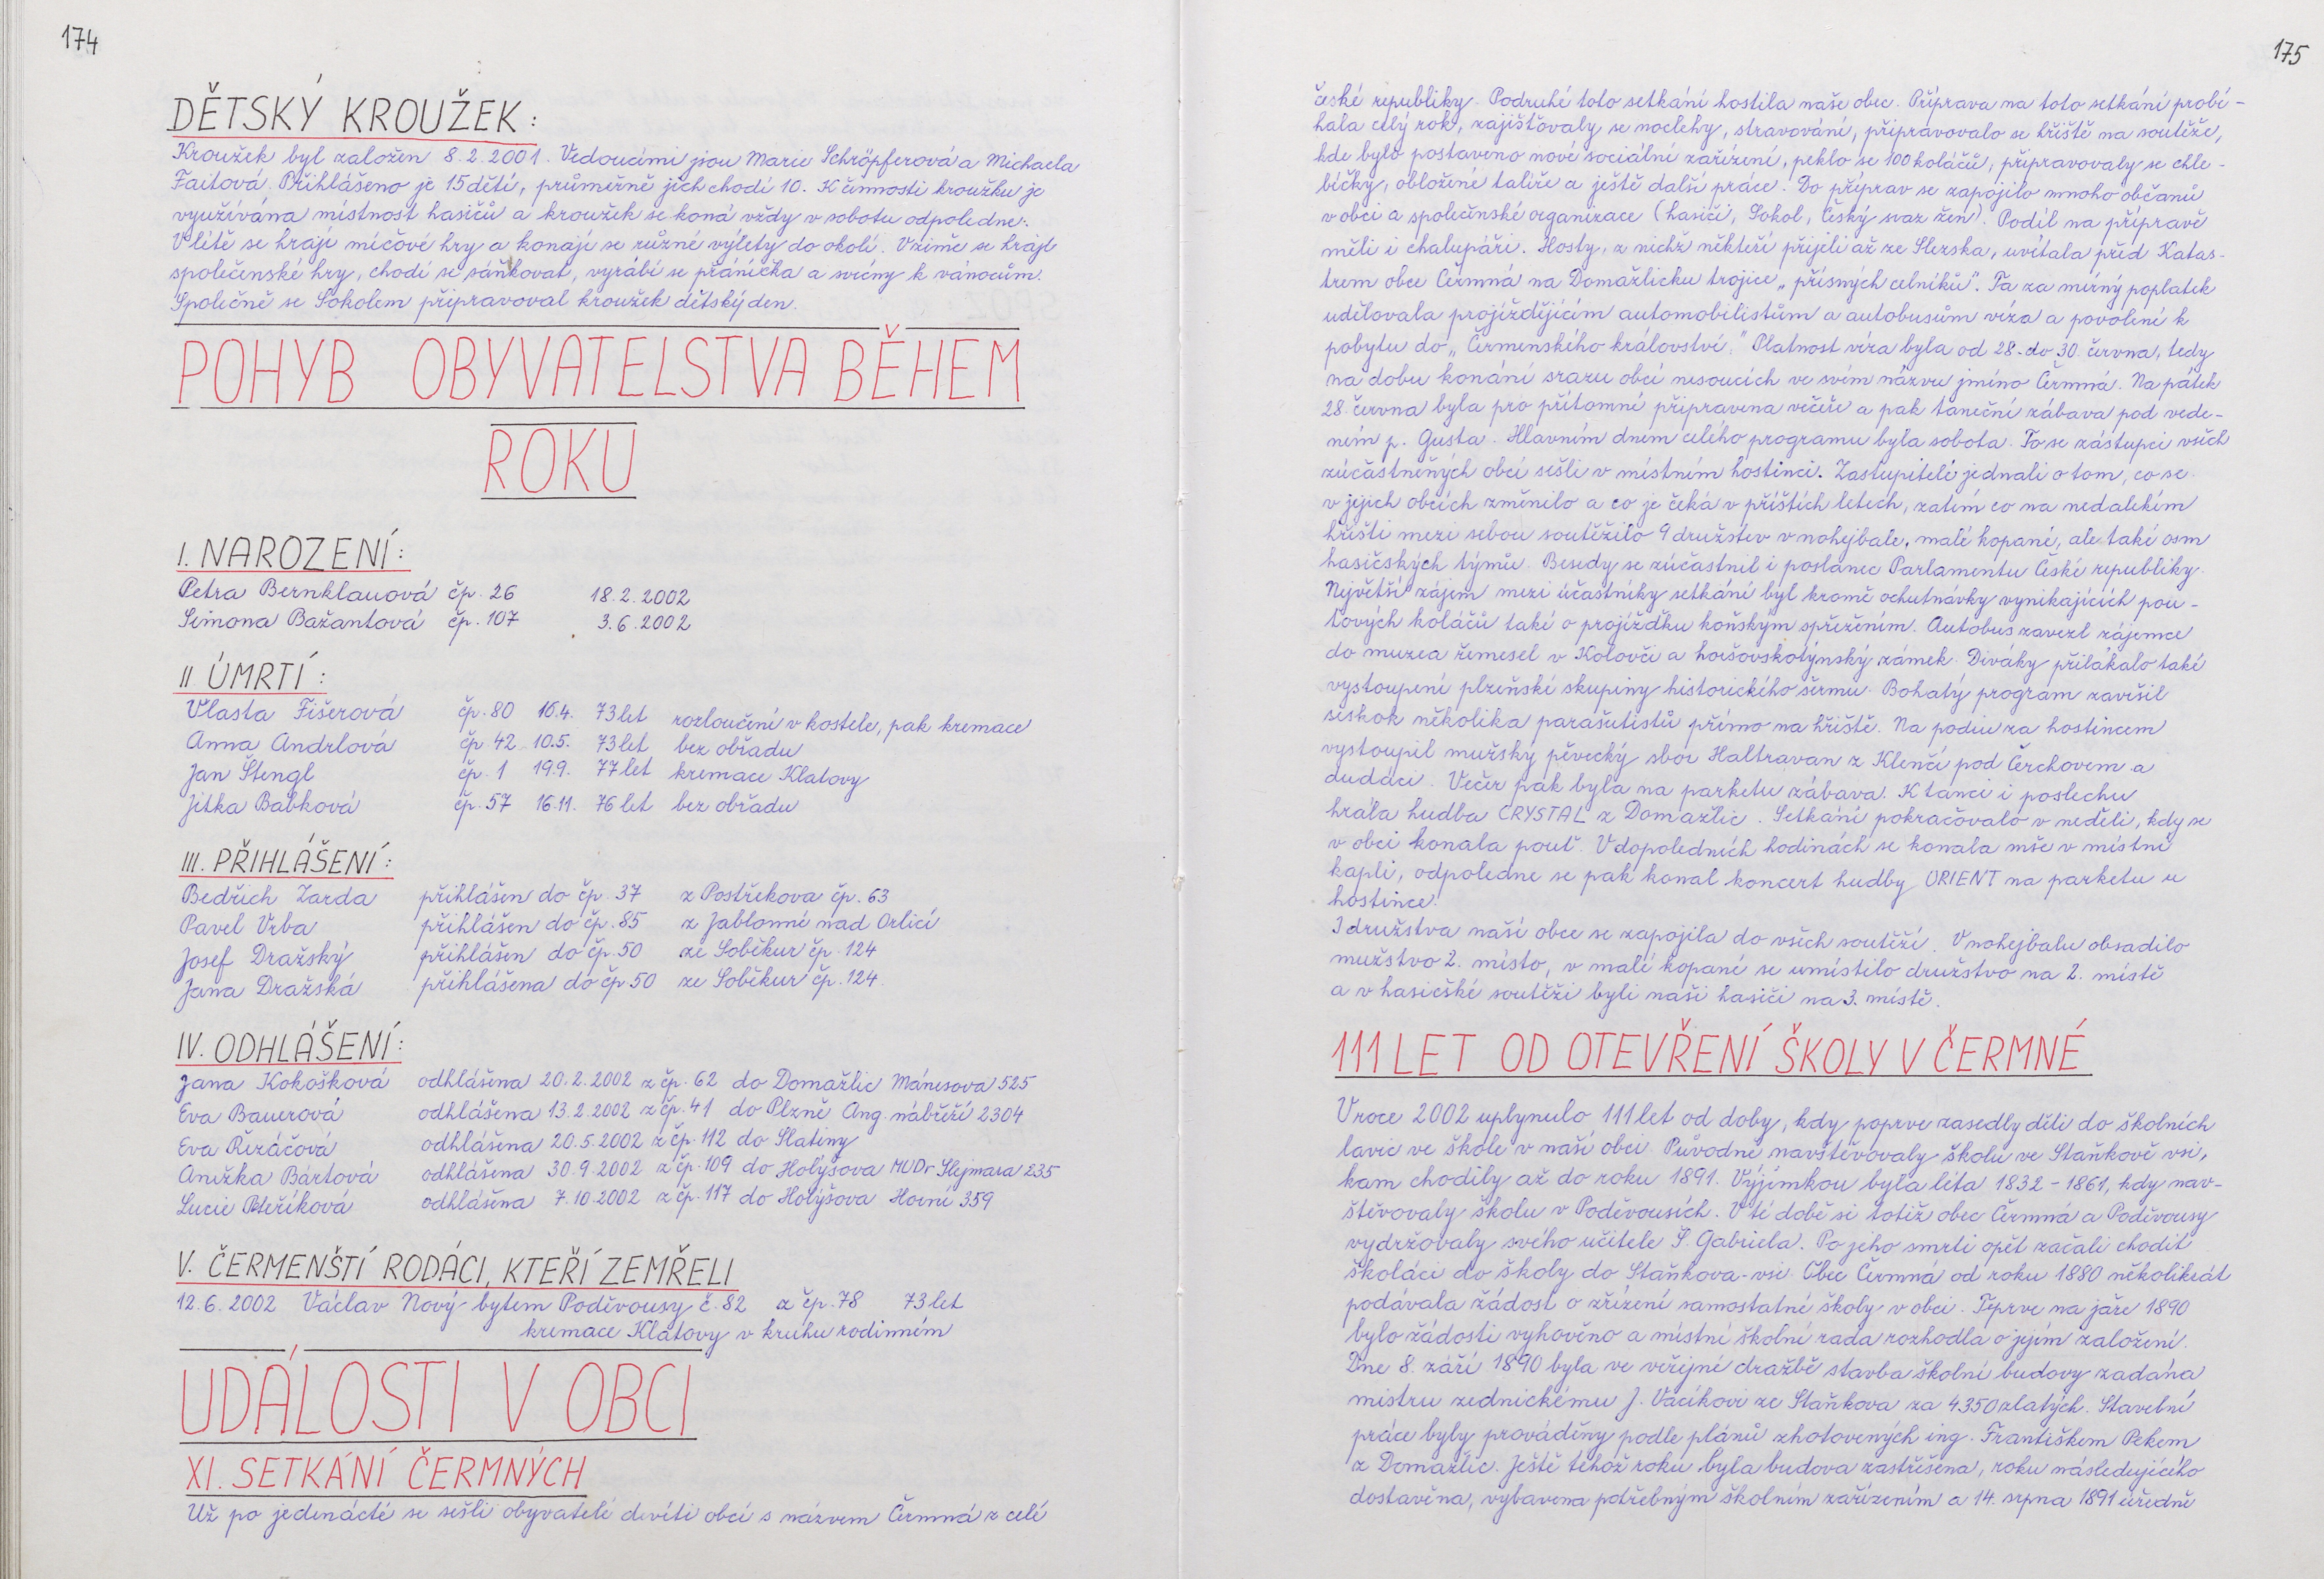 174
DĚTSKÝ KROUŽEK:
Kroužek byl založen 8.2.2001. Vedoucími jsou Marie Schröpferová a Michaela
Faitová. Přihlášeno je 15 dětí, průměrně jich chodí 10. K činnosti kroužku je
využívána místnost hasičů a kroužek se koná vždy v sobotu odpoledne.
V létě se hrají míčové hry a konají se různé výlety do okolí. V zimě se hrají
společenské hry, chodí se sáňkovat, vyrábí se přáníčka a svícny k vánocům.
Společně se Sokolem připravoval kroužek dětský den.
POHYB OBYVATELSTVA BĚHEM
ROKU
I. NAROZENÍ:
Petra Bernklauová čp. 26 18.2.2002
Simona Bažantová čp. 107 3.6.2002
II ÚMRTÍ:
Vlasta Fišerová čp. 80 16.4. 73 let rozloučení v kostele, pak kremace
Anna Andrlová čp 42 10.5. 73 let bez obřadu
Jan Štengl čp. 1 19.9. 77 let kremace Klatovy
Jitka Babková čp. 57 16.11. 76 let bez obřadu
III. PŘIHLÁŠENÍ:
Bedřich Zarda přihlášen do čp. 37 z Postřekova čp. 63
Pavel Vrba přihlášen do čp. 85 z Jablonné nad Orlicí
Josef Dražský přihlášen do čp. 50 ze Soběkur čp. 124
Jana Dražská přihlášena do čp 50 ze Soběkur čp. 124.
IV. ODHLÁŠENÍ:
Jana Kokošková odhlášena 20.2.2002 z čp. 62 do Domažlic Mánesova 525
Eva Bauerová odhlášena 13.2.2002 z čp. 41 do Plzně Ang. nábřeží 2304
Eva Řezáčová odhlášena 20.5.2002 z čp. 112 do Slatiny
Anežka Bártová odhlášena 30.9.2002 z čp. 109 do Holýšova MUDr Slejmara 235
Lucie Peteříková odhlášena 7.10.2002 z čp. 117 do Holýšova Horní 359
V. ČERMENŠTÍ RODÁCI, KTEŘÍ ZEMŘELI
12.6.2002 Václav Nový bytem Poděvousy č. 82 z čp. 78 73 let
kremace Klatovy v kruhu rodinném
UDÁLOSTI V OBCI
XI. SETKÁNÍ ČERMNÝCH
Už po jedenácté se sešli obyvatelé devíti obcí s názvem Čermná z celé
175
české republiky. Podruhé toto setkání hostila naše obec. Příprava na toto setkání probí-
hala celý rok, zajišťovaly se noclehy, stravování, připravovalo se hřiště na soutěže,
kde bylo postaveno nové sociální zařízení, peklo se 100 koláčů, připravovaly se chle-
bíčky, obložené talíře a ještě další práce. Do příprav se zapojilo mnoho občanů
v obci a společenské organizace (hasiči, Sokol, Český svaz žen). Podíl na přípravě
měli i chalupáři. Hosty, z nichž někteří přijeli až ze Slezska, uvítala před Katas-
trem obce Čermná na Domažlicku trojice „přísných celníků". Ta za mírný poplatek
udělovala projíždějícím automobilistům a autobusům víza a povolení k
pobytu do „Čermenského království." Platnost víza byla od 28. do 30. června, tedy
na dobu konání srazu obcí nesoucích ve svém názvu jméno Čermná. Na pátek
28. června byla pro přítomné připravena večeře a pak taneční zábava pod vede-
ním p. Gusta. Hlavním dnem celého programu byla sobota. To se zástupci všech
zúčastněných obcí sešli v místním hostinci. Zastupitelé jednali o tom, co se
v jejich obcích změnilo a co je čeká v příštích letech, zatím co na nedalekém
hřišti mezi sebou soutěžilo 9 družstev v nohejbale, malé kopané, ale také osm
hasičských týmů. Besedy se zúčastnil i poslanec Parlamentu České republiky.
Největší zájem mezi účastníky setkání byl kromě ochutnávky vynikajících pou-
ťových koláčů také o projížďku koňským spřežením. Autobus zavezl zájemce
do muzea řemesel v Kolovči a horšovskotýnský zámek. Diváky přilákalo také
vystoupení plzeňské skupiny historického šermu. Bohatý program završil
seskok několika parašutistů přímo na hřiště. Na podiu za hostincem
vystoupil mužský pěvecký sbor Haltravan z Klenčí pod Čerchovem a
dudáci. Večer pak byla na parketu zábava. K tanci i poslechu
hrála hudba CRYSTAL z Domažlic. Setkání pokračovalo v neděli, kdy se
v obci konala pouť. V dopoledních hodinách se konala mše v místní
kapli, odpoledne se pak konal koncert hudby ORIENT na parketu u
hostince.
I družstva naší obce se zapojila do všech soutěží. V nohejbalu obsadilo
mužstvo 2. místo, v malé kopané se umístilo družstvo na 2. místě
a v hasičské soutěži byli naši hasiči na 3. místě.
111 LET OD OTEVŘENÍ ŠKOLY V ČERMNÉ
V roce 2002 uplynulo 111 let od doby, kdy poprve zasedly děti do školních
lavic ve škole v naší obci. Původně navštěvovaly školu ve Staňkově vsi,
kam chodily až do roku 1891. Výjimkou byla léta 1832 - 1861, kdy nav-
štěvovaly školu v Poděvousích. V té době si totiž obec Čermná a Poděvousy
vydržovaly svého učitele Š. Gabriela. Po jeho smrti opět začali chodit
školáci do školy do Staňkova-vsi. Obec Čermná od roku 1880 několikrát
podávala žádost o zřízení samostatné školy v obci. Teprve na jaře 1890
bylo žádosti vyhověno a místní školní rada rozhodla o jejím založení.
Dne 8. září 1890 byla ve veřejné dražbě stavba školní budovy zadána
mistru zednickému J. Vacíkovi ze Staňkova za 4350 zlatých. Stavební
práce byly prováděny podle plánů zhotovených ing. Františkem Pekem
z Domažlic. Ještě téhož roku byla budova zastřešena, roku následujícího
dostavěna, vybavena potřebným školním zařízením a 14. srpna 1891 úředně